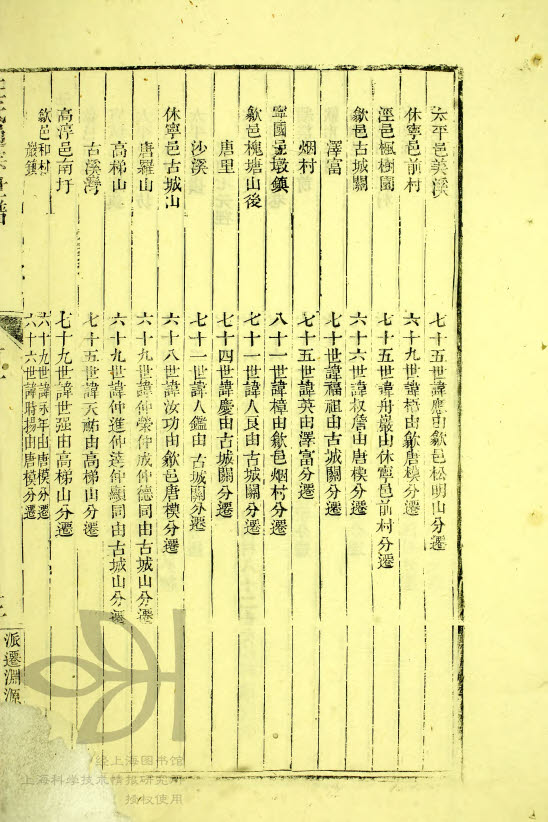 太平邑美溪　七十五世諱應由歙邑松明山分遷
休寧邑前村　六十九世諱椿由歙唐模分遷
涇邑楓樹園　七十五世諱舟巖由休寧邑前村分遷
歙邑古城關　六十六世諱叔詹由唐模分遷
澤富　七十世諱福祖由古城關分遷
烟村　七十五世諱英由澤富分遷
寧國邑墩鎮　八十一世諱樟由歙邑烟村分遷
歙邑槐塘山後　七十一世諱人良由古城關分遷
唐里　七十四世諱慶由古城關分遷
沙溪　七十一世諱人鑑由古城關分遷
休寧邑古城山　六十八世諱汝功由歙邑唐模分遷
唐羅山　六十九世諱仲榮仲成仲德同由古城山分遷
高梯山　六十九世諱仲進仲達仲顯同由古城山分遷
古溪灣　七十五世諱天由高梯山分遷
高淳邑南圩　七十九世諱世强由高梯山分遷
歙邑和村　六十九世諱永年由唐模分遷
巖鎮　六十六世諱時揚由唐模分遷
派遷淵源
上海图书馆
上海科学技术情报研究
授权使用